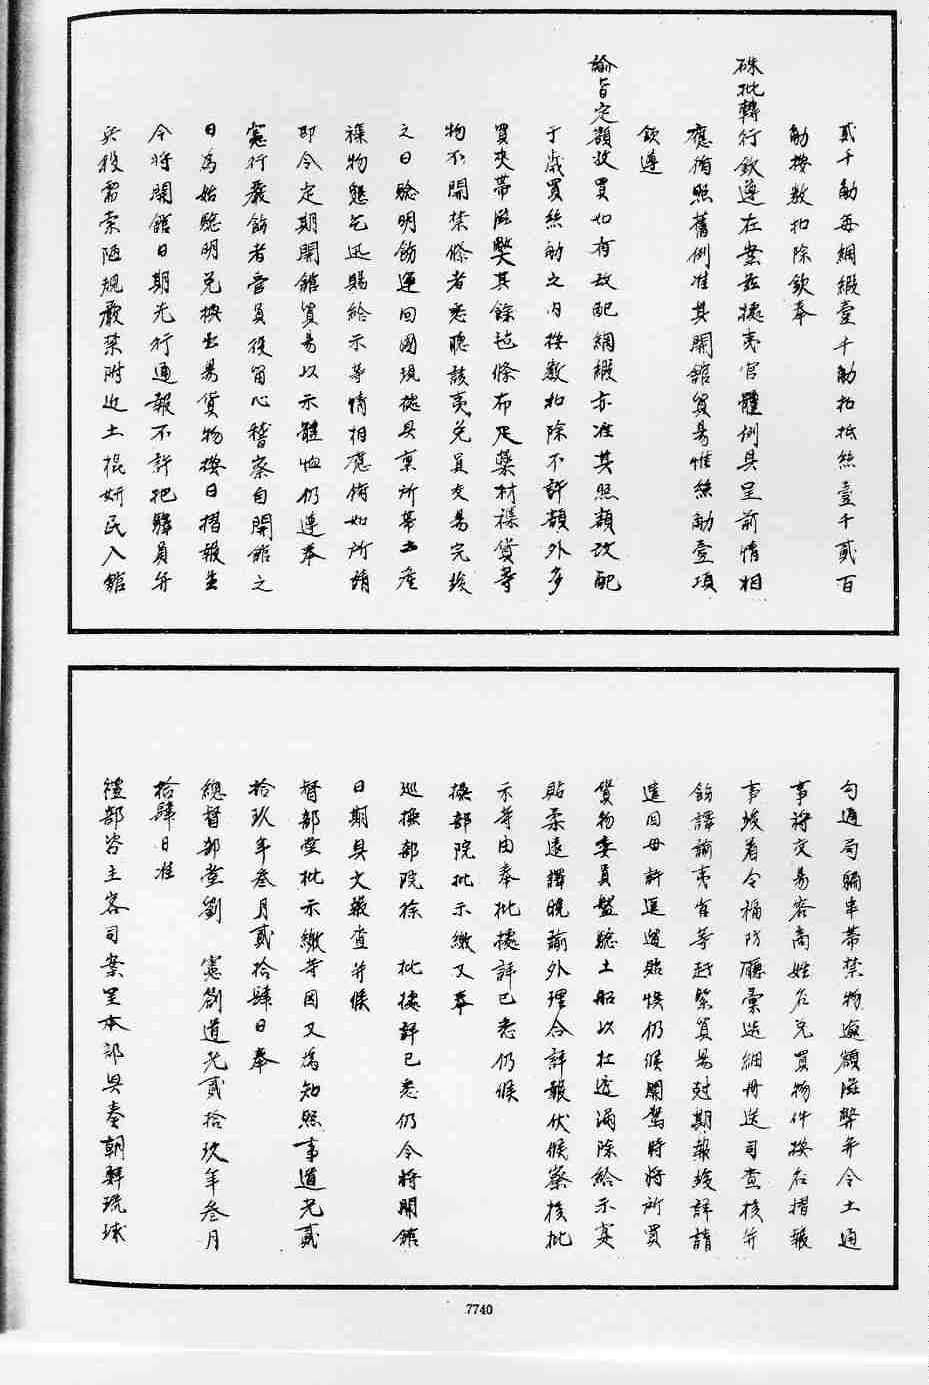 貳千觔每綢緞壹千觔抬抵絲壹千貳百
觔按數扣除欽奉
硃批轉行欽遵在案茲據夷官體例具呈前情相
應循照舊例准其開館貿易惟絲觔壹項
欽遵
諭旨定額改買如有改配綢緞亦准其照額改配
于歲買絲觔之內按數扣除不許額外多
買夾帶滋弊其餘毡條布疋藥材襍貨等
物不開禁條者悉聽該夷兌買交易完竣
之日驗明飭運回國現據具稟所帶土產
襍物懇乞迅賜給示等情相應循如所請
即令定期開館貿易以示體恤仍遵奉
憲行嚴飭看管員役留心稽察自開館之
日為始驗明兌換出易貨物按日摺報生
今將開館日期先行通報不許把驛員弁
兵役需索陋規嚴禁附近土棍奸民入館
勾通局騙串帶禁物逾額滋弊弁令土通
事將交易客商姓名兌買物件按名摺報
事竣着令福防廳彙造細冊送司查核并
飭譯諭夷官等赶緊貿易尅期報竣詳請
遣回毋許逗遛貽悮仍候開駕時將所買
貨物委員盤驗土船以杜透漏除給示奕
貼柔遠驛曉諭外理合詳報伏候察核批
示等由奉批據詳已悉仍候
撫部院批示繳又奉
巡撫部院徐 批據詳已悉仍令將開館
日期具文報查并候
督部堂批示繳等因又為知照事道光貳
拾玖年叁月貳拾肆日奉
總督部堂劉 憲劄道光貳拾玖年叁月
拾肆日准
禮部咨主客司案呈本部具奏朝鮮琉球
7740